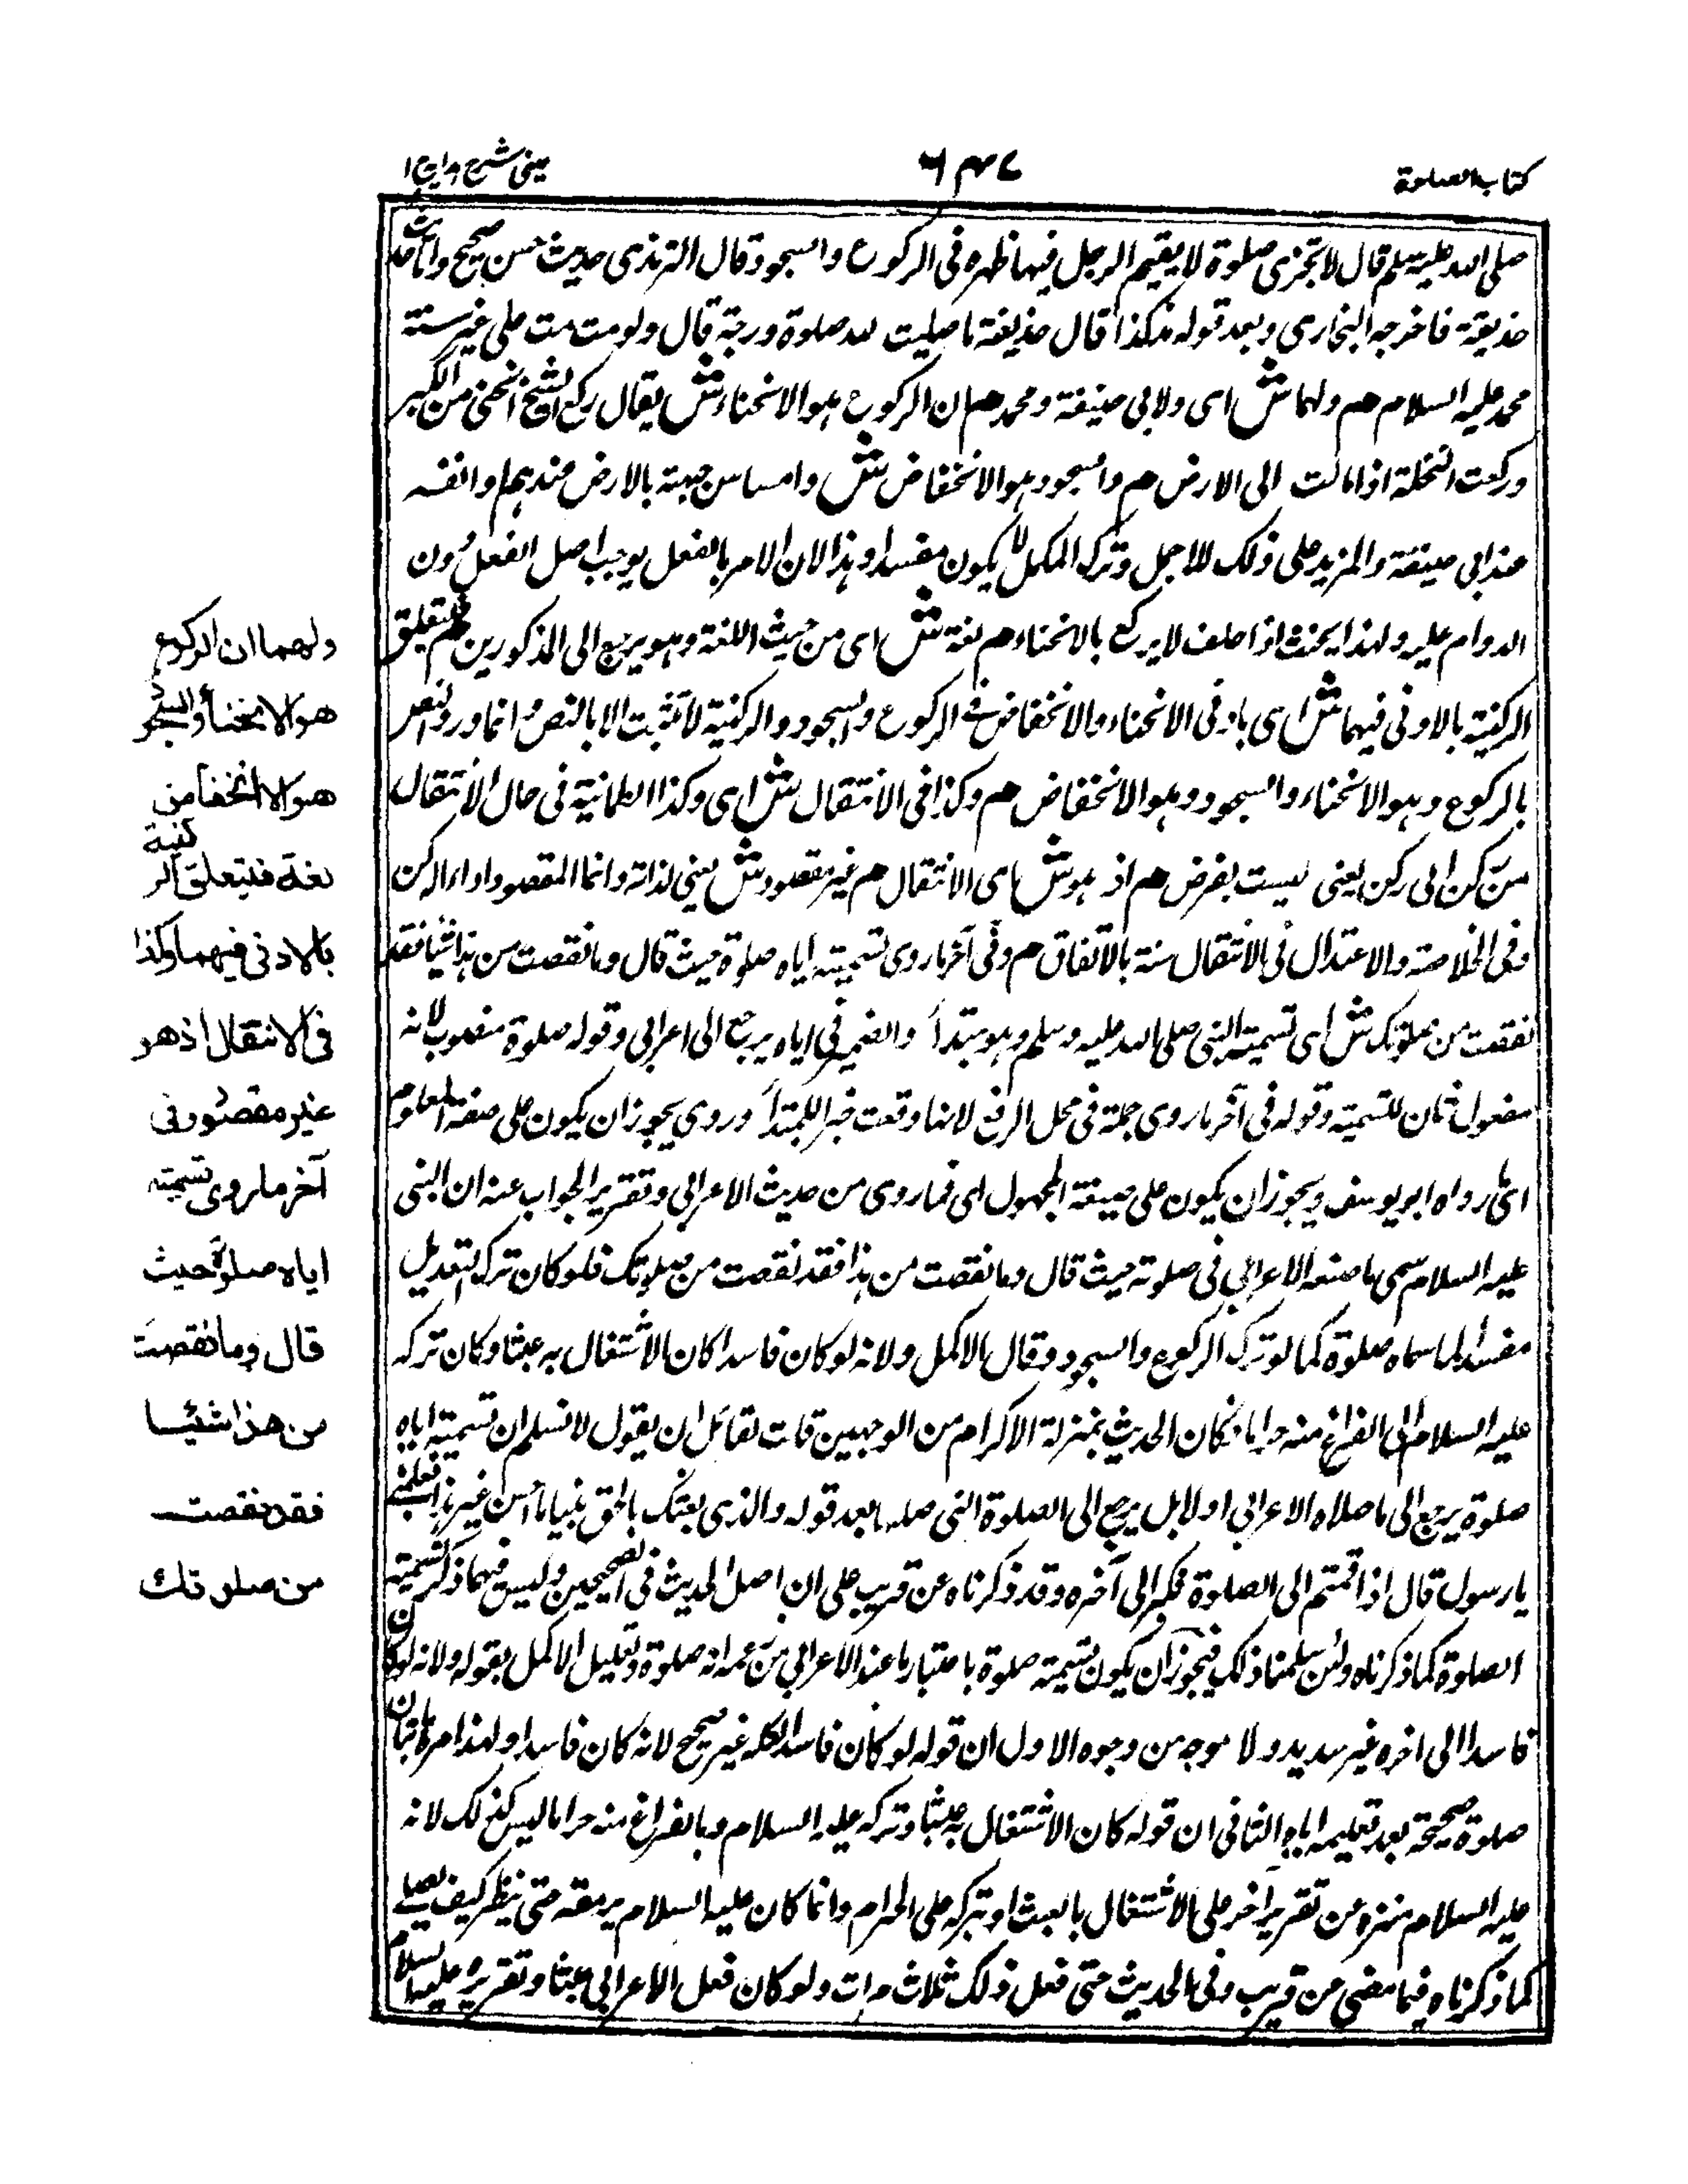 كتاب الصلوة
٦٤٧
عينى شرح هدايه ج ١
صلى الله عليه سلم قال لا تجزى صلوة لا يقيم الرجل فيها ظهره فى الركوع والسجود وقال الترمذى حديث حسن صحيح واما حديث
حذيفة فاخرجه البخارى وبعد قوله هكذا قال حذيفة ما صليت لله صلوة ورجة قال ولومت مت على غير سنة
محمد عليه السلام هم ولهما ش اى ولابى حنيفة ومحمد هم ان الركوع هو الانحناء ش يقال ركع الشيخ انحنى من الكبر
وركعت النخلة اذا مالت الى الارض هم والسجود هو الانخفاض ش وامساس جبهة بالارض عندهم او انفه
عند ابى حنيفة والمزيد على ذلك للاجل وترك المكمل لا يكون مفسدا وهذا لان الامر بالفعل يوجب اصل الفعل دون
الدوام عليه ولهذا يحنث اذا حلف لا يركع بالانحناء هم لغة ش اى من حيث اللغة وهو يرجع الى المذكورين هم فتتعلق
الركنية بالادنى فيهما ش اى بادنى الانحناء والانخفاض فى الركوع والسجود والركنية لا تثبت الا بالنص وانما ورد النص
بالركوع وهو الانحناء والسجود وهو الانخفاض هم وكذا فى الانتقال ش اى وكذا الطمانية فى حال الانتقال
من ركن الى ركن يعنى ليست بفرض هم اذ هو ش اى الانتقال هم غير مقصود ش يعنى لذاته وانما المقصود اداء الركن
وفى الخلاصة والاعتدال فى الانتقال سنة بالاتفاق هم وفى آخر ما روى تسميته اياه صلوة حيث قال وما نقصت من هذا شيئا فقد
نقصت من صلوتك ش اى تسمية النبى صلى الله عليه وسلم وهو مبتدأ والضمير فى اياه يرجع الى اعرابى وقوله صلوة منصوب لانه
مفعول ثان للتسمية وقوله فى آخر ما روى جملة فى محل الرفع لانها وقعت خبر للمبتدأ وروى يجوز ان يكون على صيغة المعلوم
اى ما رواه ابو يوسف ويجوز ان يكون على صيغة المجهول اى فما روى من حديث الاعرابى وتقرير الجواب عنه ان النبى
عليه السلام سمى ما صنعه الاعرابى فى صلوته حيث قال وما نقصت من هذا فقد نقصت من صلوتك فلو كان ترك التعديل
مفسدا لما سماه صلوة كما لو ترك الركوع والسجود وقال الاكمل ولانه لو كان فاسدا كان الاشتغال به عبثا وكان تركه
عليه السلام الى الفراغ منه حراما فكان الحديث بمنزلة الاكرام من الوجهين قلت لقائل ان يقول لا نسلم ان تسميته اياه
صلوة يرجع الى ما صلاه الاعرابى اولا بل يرجع الى الصلوة التى صلها بعد قوله والذى بعثك بالحق نبيا ما احسن غير هذا فعلمنى
يا رسول قال اذا قمتم الى الصلوة فكبر الى آخره وقد ذكرناه عن قريب على ان اصل الحديث فى الصحيحين وليس فيهما ذكر تسمية
الصلوة كما ذكرناه ولئن سلمنا ذلك فيجوز ان يكون تسميته صلوة باعتبار ما عند الاعرابى من زعمه انه صلوة وتعليل الاكمل بقوله ولانه لو كان
فاسدا الى اخره غير سديد ولا موجه من وجوه الاول ان قوله لو كان فاسدا لكله غير صحيح لانه كان فاسدا ولهذا امره باتيان
صلوة صحيحة بعد تعليمه اياه الثانى ان قوله كان الاشتغال به عبثا وتركه عليه السلام وبالفراغ منه حراما ليس كذلك لانه
عليه السلام منزه عن تقرير آخر على الاشتغال بالعبث او بتركه على الحرام وانما كان عليه السلام يرمقه حتى ينظر كيف يصلى
كما ذكرناه فيما مضى من قريب وفى الحديث حتى فعل ذلك ثلاث مرات ولو كان فعل الاعرابى عبثا وتقريره عليه السلام
ولهما ان الركوع
هو الانحناء والسجود
هو الانخفاض
لغة فتتعلق الركنية
بالادنى فيهما وكذا
فى الانتقال اذ هو
غير مقصود وفى
آخر ما روى تسميته
اياه صلوة حيث
قال وما نقصت
من هذا شيئا
فقد نقصت
من صلوتك